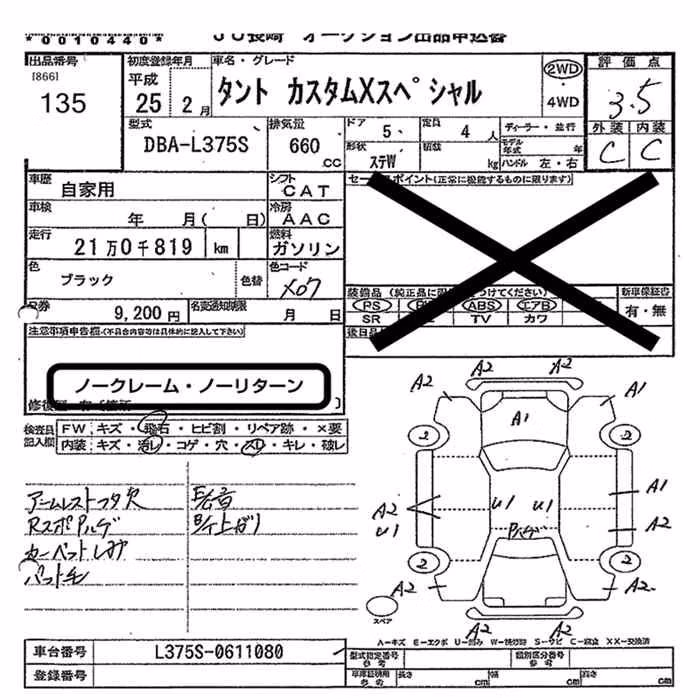 *0010440*
JU長崎 オークション出品申込書
出品番号 初度登録年月 車名・グレード 評価点
[866] 平成
135 25 2月 タント カスタムXスペシャル 2WD 4WD 3.5
外装 内装
C C
型式 排気量 ドア 5 定員 4人 ディーラー・並行
DBA-L375S 660 CC 形状 ステW 積載 kg モデル年式 年 ハンドル 左・右
車歴 自家用 シフト CAT
車検 年 月( 日) 冷房 AAC
走行 21万0千819 km 燃料 ガソリン
色 ブラック 色替 色コード X07
9,200円 名変通知期限 月 日
セールスポイント(正常に機能するものに限ります)
装備品 新車保証書
PS ABS エアB 有・無
SR TV カワ
注意事項申告欄(不具合内容等は具体的に記入して下さい)
ノークレーム・ノーリターン
検査員記入欄 FW キズ・飛石・ヒビ割・リペア跡・×要
内装 キズ・汚れ・コゲ・穴・スレ・キレ・破レ
アームレストフタ欠
カーペットしみ
A2 A2
A2 A1
A1
2 2
A1
A2 U1 U1 A2
U1
2 2
A2 A2
A2 A2
スペア
A-キズ E-エクボ U-凹み W-補修跡 S-サビ C-腐食 XX-交換済
車台番号 L375S-0611080
登録番号
型式指定番号 参考 類別区分番号 参考
車庫証明用 参考 長さ cm 幅 cm 高さ cm